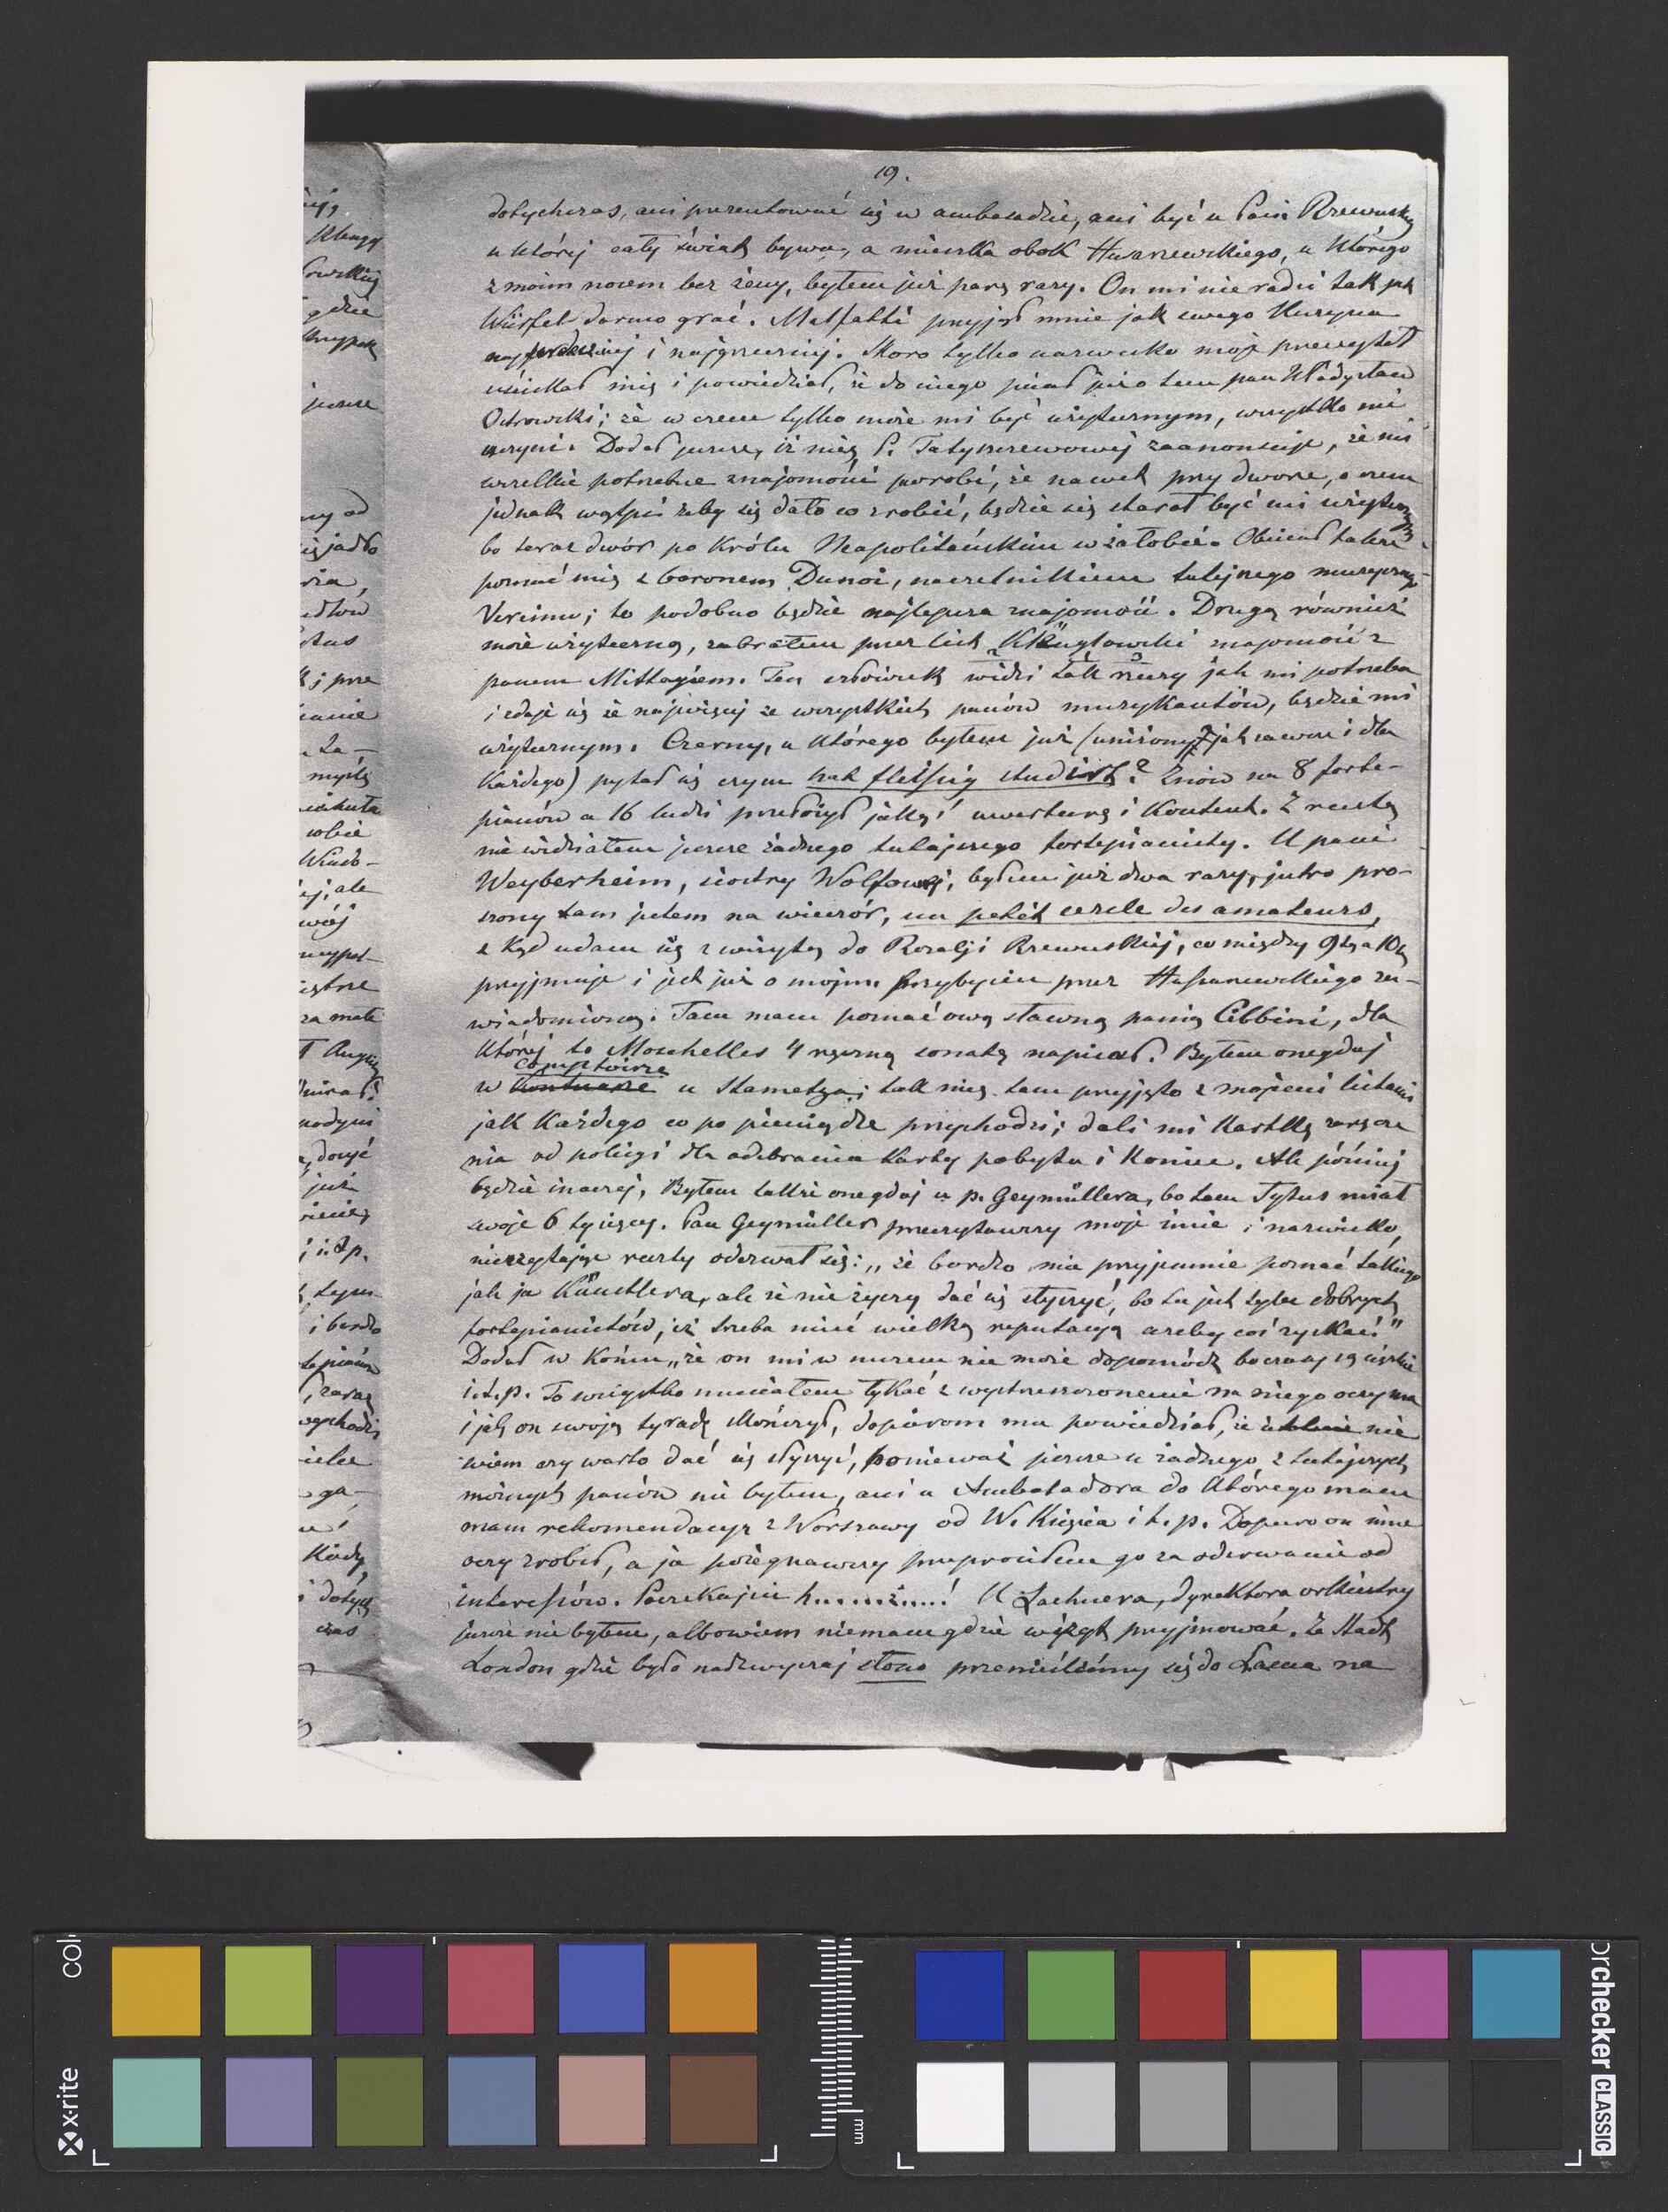 19.
dotychczas, ani prezentować się w ambasadzie, ani być u Pani Rzewuskiej
u której cały świat bywa, a mieszka obok Husarzewskiego, u którego
z moim nosem bez żeny, byłem już parę razy. On mi nie radzi tak jak
Würfel darmo grać. Malfatti przyjął mnie jak swego kuzyna
najserdeczniej i najgrzeczniej. Skoro tylko nazwisko moje przeczytał
uściskał mię i powiedział, że do niego pisał już o tem pan Władysław
Ostrowski; że w czem tylko może mi być użytecznym, wszystko mi
uczyni. Dodał jeszcze, iż mię P. Tatyszczewowej zaanonsuje, że mi
wszelkie potrzebne znajomości porobi, że nawet przy dworze, o czem
jednak wątpi żeby się dało co zrobić, będzie się starał być mi użytecznym
bo teraz dwór po Królu Neapolitańskim w żałobie. Obiecał także
poznać mię z baronem Dunoi, naczelnikiem tutejnego muzycznego
Vereinu; to podobno będzie najlepsza znajomość. Drugą również
może użyteczną, zabrałem przez list Klküglowski znajomość z
panem Mittagiem. Ten człowiek widzi tak rzeczy jak mi potrzeba
i zdaje się że najwięcej ze wszystkich panów muzykantów, będzie mi
użytecznym. Czerny, u którego byłem już (uniżony jak zawsze i dla
każdego) pytał się czym hat fleissig studirt? Znów na 8 forte-
pianów a 16 ludzi przełożył jakąś uwerturę i kontent. Z resztą
nie widziałem jeszcze żadnego tutajszego fortepianisty. U pani
Weyberheim, siostry Wolfowej, byłem już dwa razy, jutro pro-
szony tam jestem na wieczór, un petit cercle des amateurs,
z kąd udam się z wizytą do Rozalji Rzewuskiej, co między 9tą a 10tą
przyjmuje i jest już o mojm przybyciu przez Hussarzewskiego za-
wiadomioną. Tam mam poznać ową sławną panią Cibbini, dla
której to Moschelles 4 ręczną sonatę napisał. Byłem onegdaj
comptoirze
w kontuarze u Stametza; tak mię tam przyjęto z mojemi listami
jak każdego co po pieniądze przychodzi; dali mi kartkę zaręcze
nia od policyi dla odebrania karty pobytu i koniec. Ale później
będzie inaczej, Byłem także onegdaj u p. Geymüllera, bo tam Tytus miał
swoje 6 tysięcy. Pan Geymüller przeczytawszy moje imie i nazwisko,
nieczytając reszty oderwał się: „że bardzo mu przyjemnie poznać takiego
jak ja Künstlera, ale że nie życzy dać się słyszyć, bo tu jest tylu dobrych
fortepianistów, iż trzeba mieć wielką reputacyą ażeby coś zyskać."
Dodał w końcu „że on mi w niczem nie może dopomódz bo czasy są ciężkie
i.t.p. To wszystko musiałem łykać z wystrzeszczonemi na niego oczyma
i jak on swoją tyradę skończył, dopierom mu powiedział, że nie
wiem czy warto dać się słyszyć, ponieważ jeszcze u żadnego z tutajszych
możnych panów nie byłem, ani u Ambasadora do którego mam
mam rekomendacyę z Warszawy od W. Księcia i t. p. Dopiero on inne
oczy zrobił, a ja pożegnawszy przeprosiłem go za oderwanie od
interessów. Poczekajcie h......ż....! U Lachnera, dyrektora orkiestry
jeszcze nie byłem, albowiem niemam gdzie wizyt przyjmować. Ze Stadt
London gdzie było nadzwyczaj słono przenieśliśmy się do Lama na